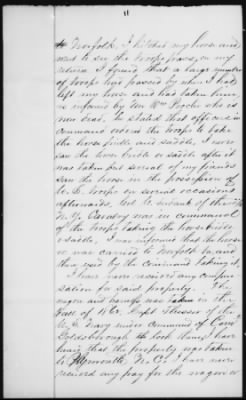 11
to Norfolk, I hitched my horse and
went to see the troops pass, on my
return I found that a large number
of troops had passed by where I had
left my horse and had taken him
as informed by Mr Wm Roche who is
now dead. He stated that officers in
command ordered the troops to take
the horse bridle and saddle, I never
saw the horse bridle or saddle after it
was taken but several of my friends
saw the horse in the possession of
U. S. troops on several occasions
afterwards, Col of the
N. Y. Cavalry was in command
of the troops taking the horse bridle
& saddle, I was informed that the horse
was carried to Norfolk Va. and
then used by the Command taking it,
I have never received any compen
sation for said property. The
wagon and harness was taken in the
Fall of 1862, Capt of the
U. S. Navy under command of Com
Goldsborough took them, I have
heard that the property was taken
to Plymouth, N. C. I have never
received any pay for the wagon or